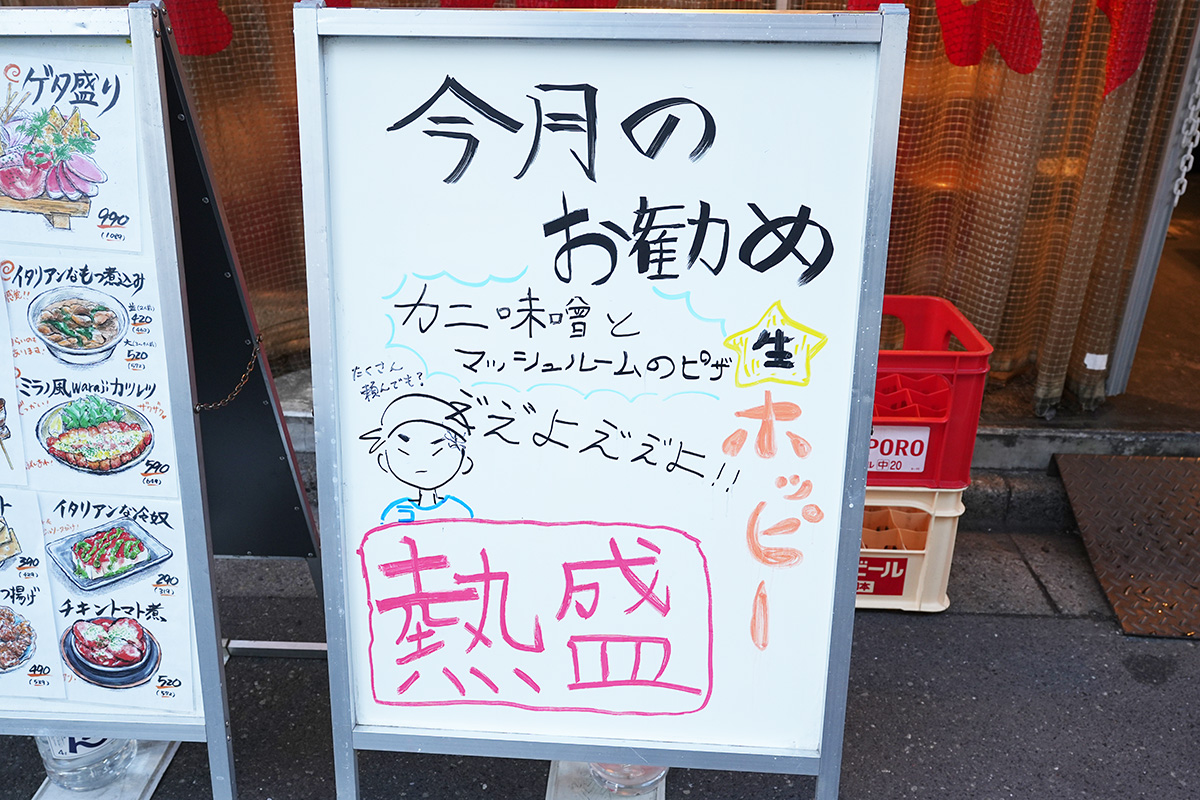 ゲタ盛り
990
イタリアンなもつ煮込み
420
520
ミラノ風warajiカツレツ
ザクザク
590
イタリアンな冷奴
290
390
チキントマト煮
520
つ揚げ
490
今月の
お勧め
カニ味噌と
マッシュルームのピザ
たくさん
頼んでも?
ぞぞよぞぞよ!!
生
ホッピー
熱盛
PORO
ル 中20
ビール